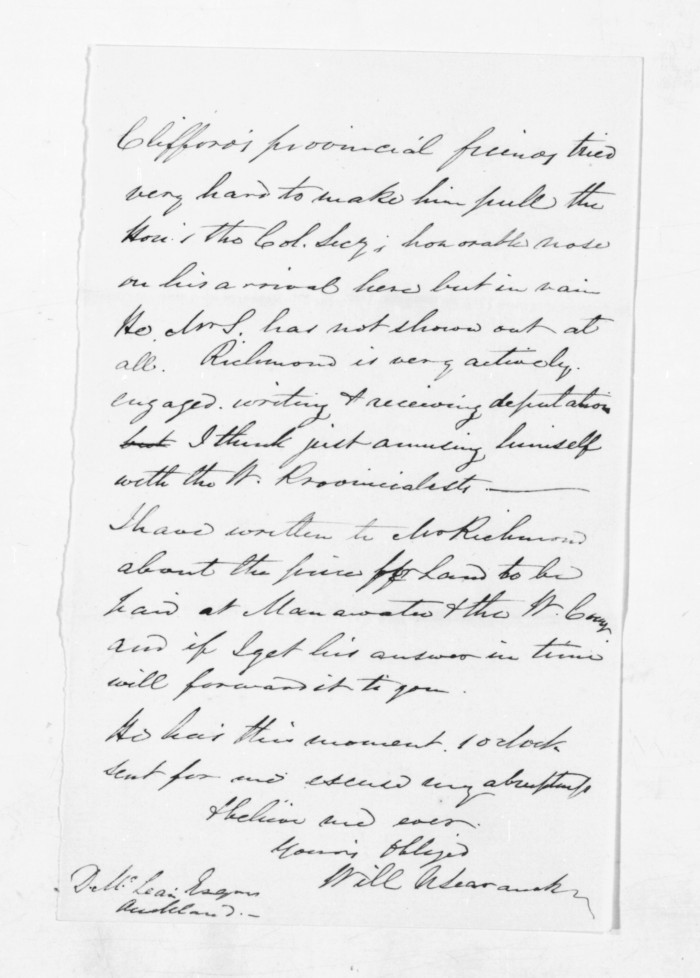 Clifford's provincial friends tried
very hard to make him pull the
Hon. the Col. Secy; honorable nose
on his arrival here but in vain
He, Mr S. has not shown out at
all. Richmond is very actively
engaged. writing & receiving deputation
but I think just amusing himself
with the W. Provincialists —
I have written to Mr Richmond
about the price for Land to be
paid at Manawatu & the W.
and if I get his answer in time
will forward it to you.
He has this moment. 1 oclock
sent for me excuse my abruptness
& believe me ever.
Yours Obliged
Will N Searancke
D. McLean Esquire
Auckland. —